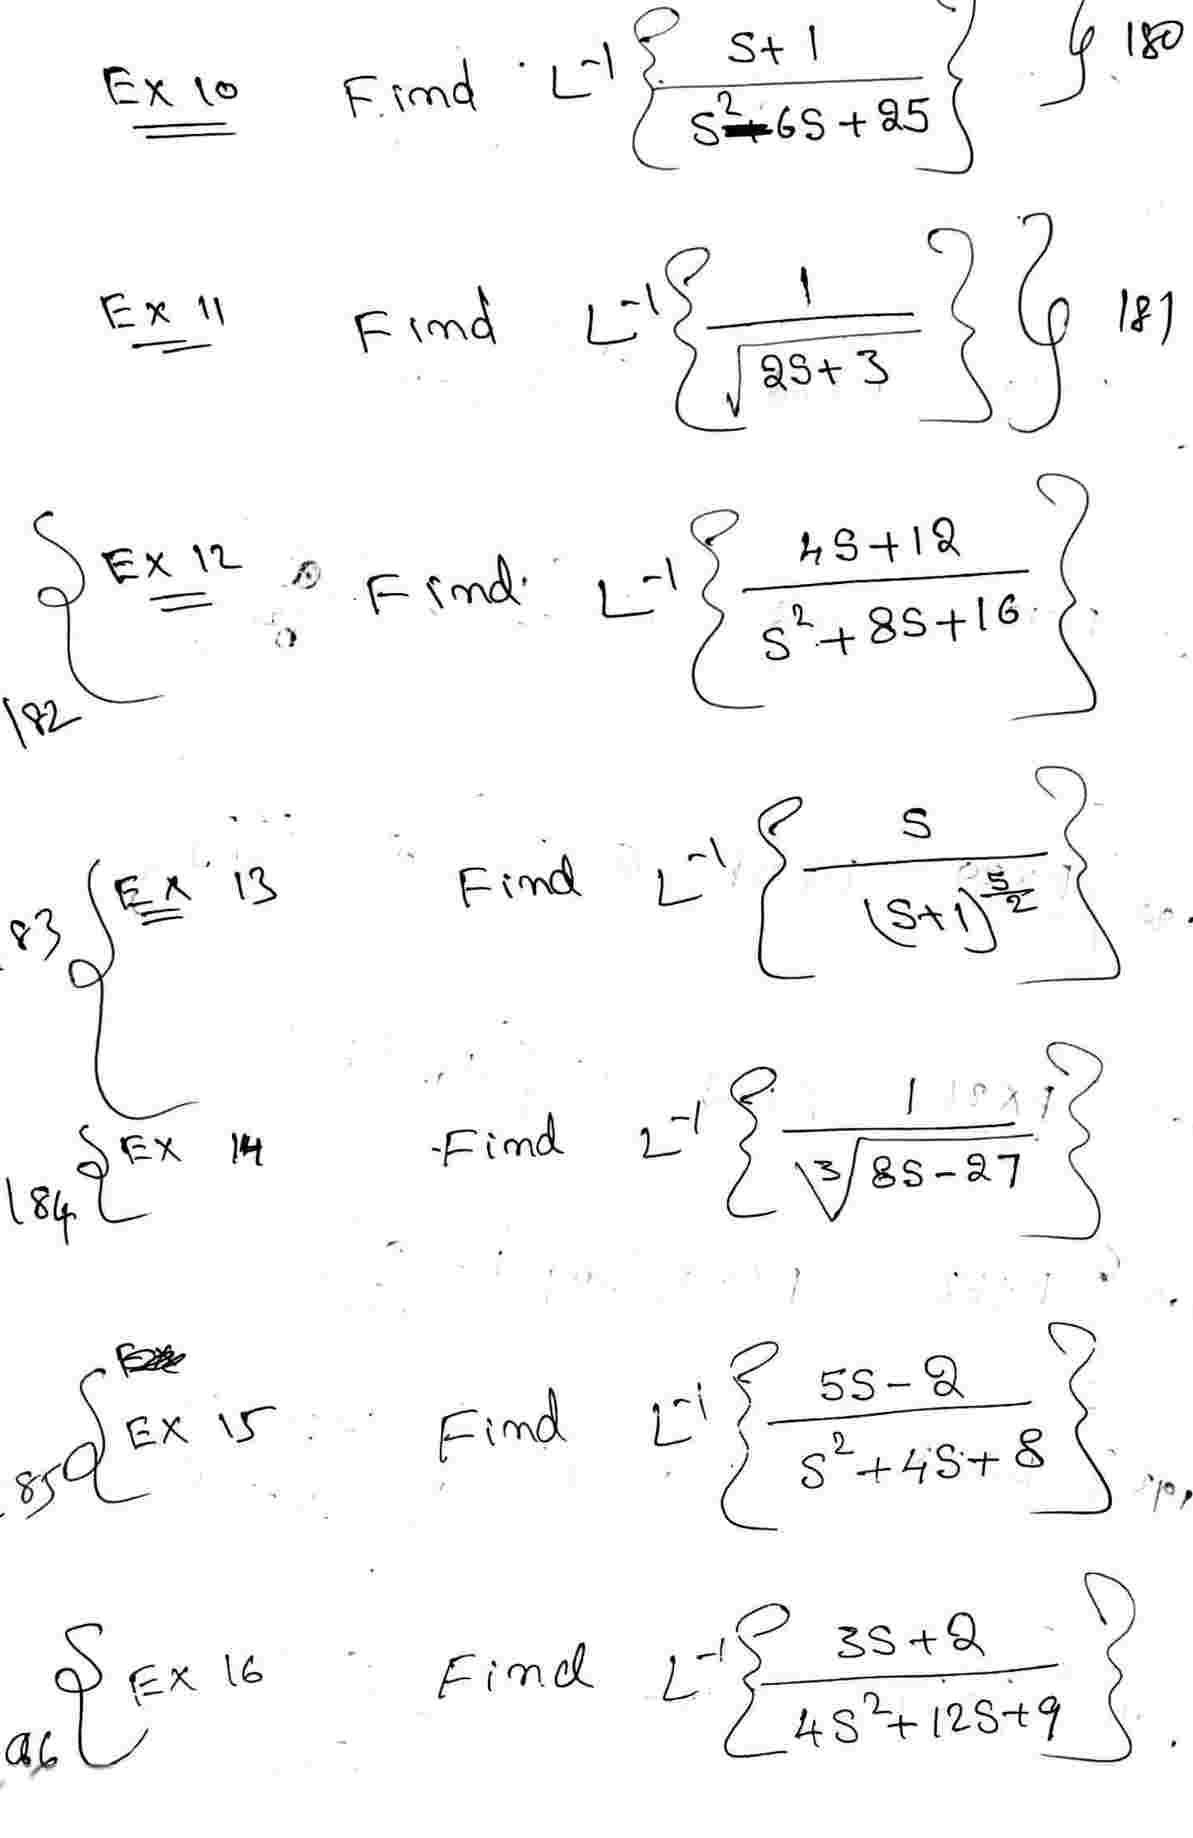 Ex 10 Find L^-1 { (s+1) / (s^2 - 6s + 25) } } 180
Ex 11 Find L^-1 { 1 / √(2s+3) } } 181
{ Ex 12 Find L^-1 { (4s+12) / (s^2 + 8s + 16) }
182
83 { Ex 13 Find L^-1 { s / (s+1)^(5/2) }
184 { Ex 14 Find L^-1 { 1 / ∛(8s-27) }
85 { Ex 15 Find L^-1 { (5s-2) / (s^2 + 4s + 8) }
86 { Ex 16 Find L^-1 { (3s+2) / (4s^2 + 12s + 9) }